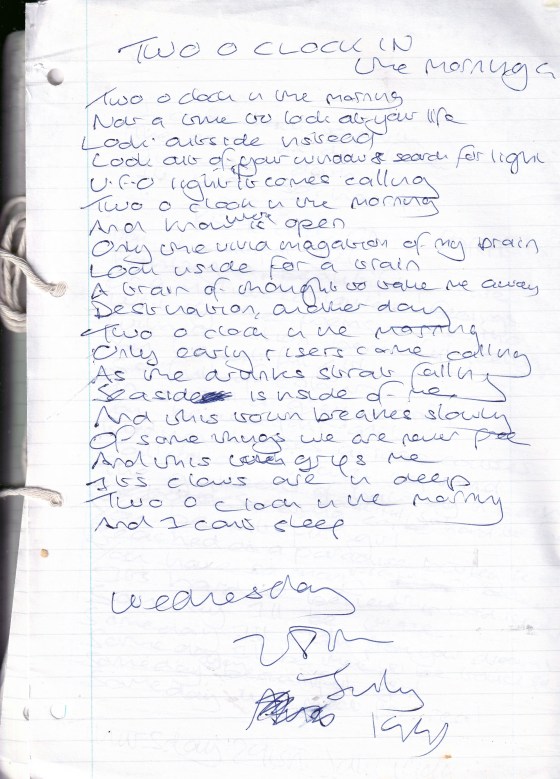 TWO O CLOCK IN
the morning
Two o clock in the morning
Not a time to look at your life
Look outside instead
Look out of your window & search for light
U.F.O light it comes calling
Two o clock in the morning
And know open
Only the vivid imagation of my brain
Look inside for a train
A train of thought to take me away
Destination, another day
Two o clock in the morning
Only early risers come calling
As the drinks start falling
Seaside is inside of me
And this town breathes slowly
Of some things we are never free
And this grips me
Its claws are in deep
Two o clock in the morning
And I cant sleep
Wednesday
July